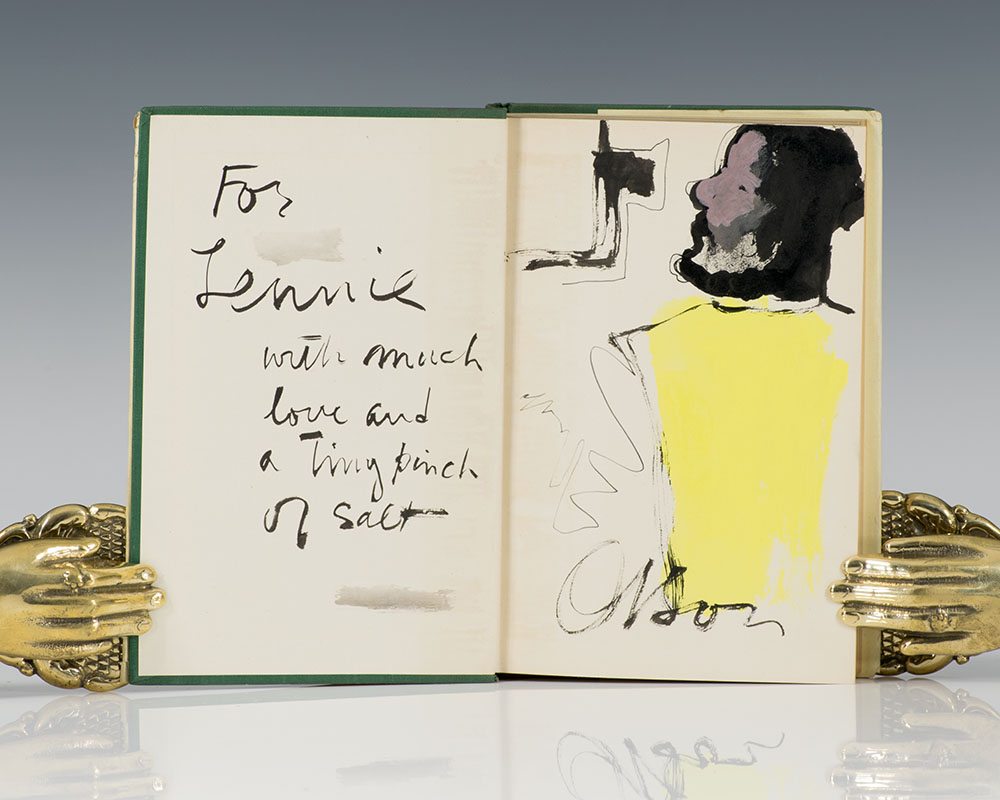 For
Lennie
with much
love and
a Tiny pinch
of salt
Orson